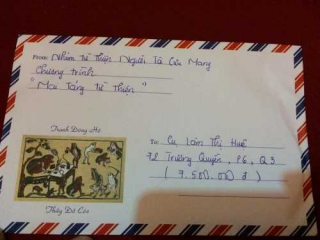 From: Nhóm từ thiện Người Tôi Cưu Mang
Chương trình
"Mai Táng từ thiện"
Tranh Đông Hồ
Thầy Đồ Cóc
To: Cụ Lâm Thị Huê
92 Trương Quyền, P6, Q3
(7.500.000 đ)